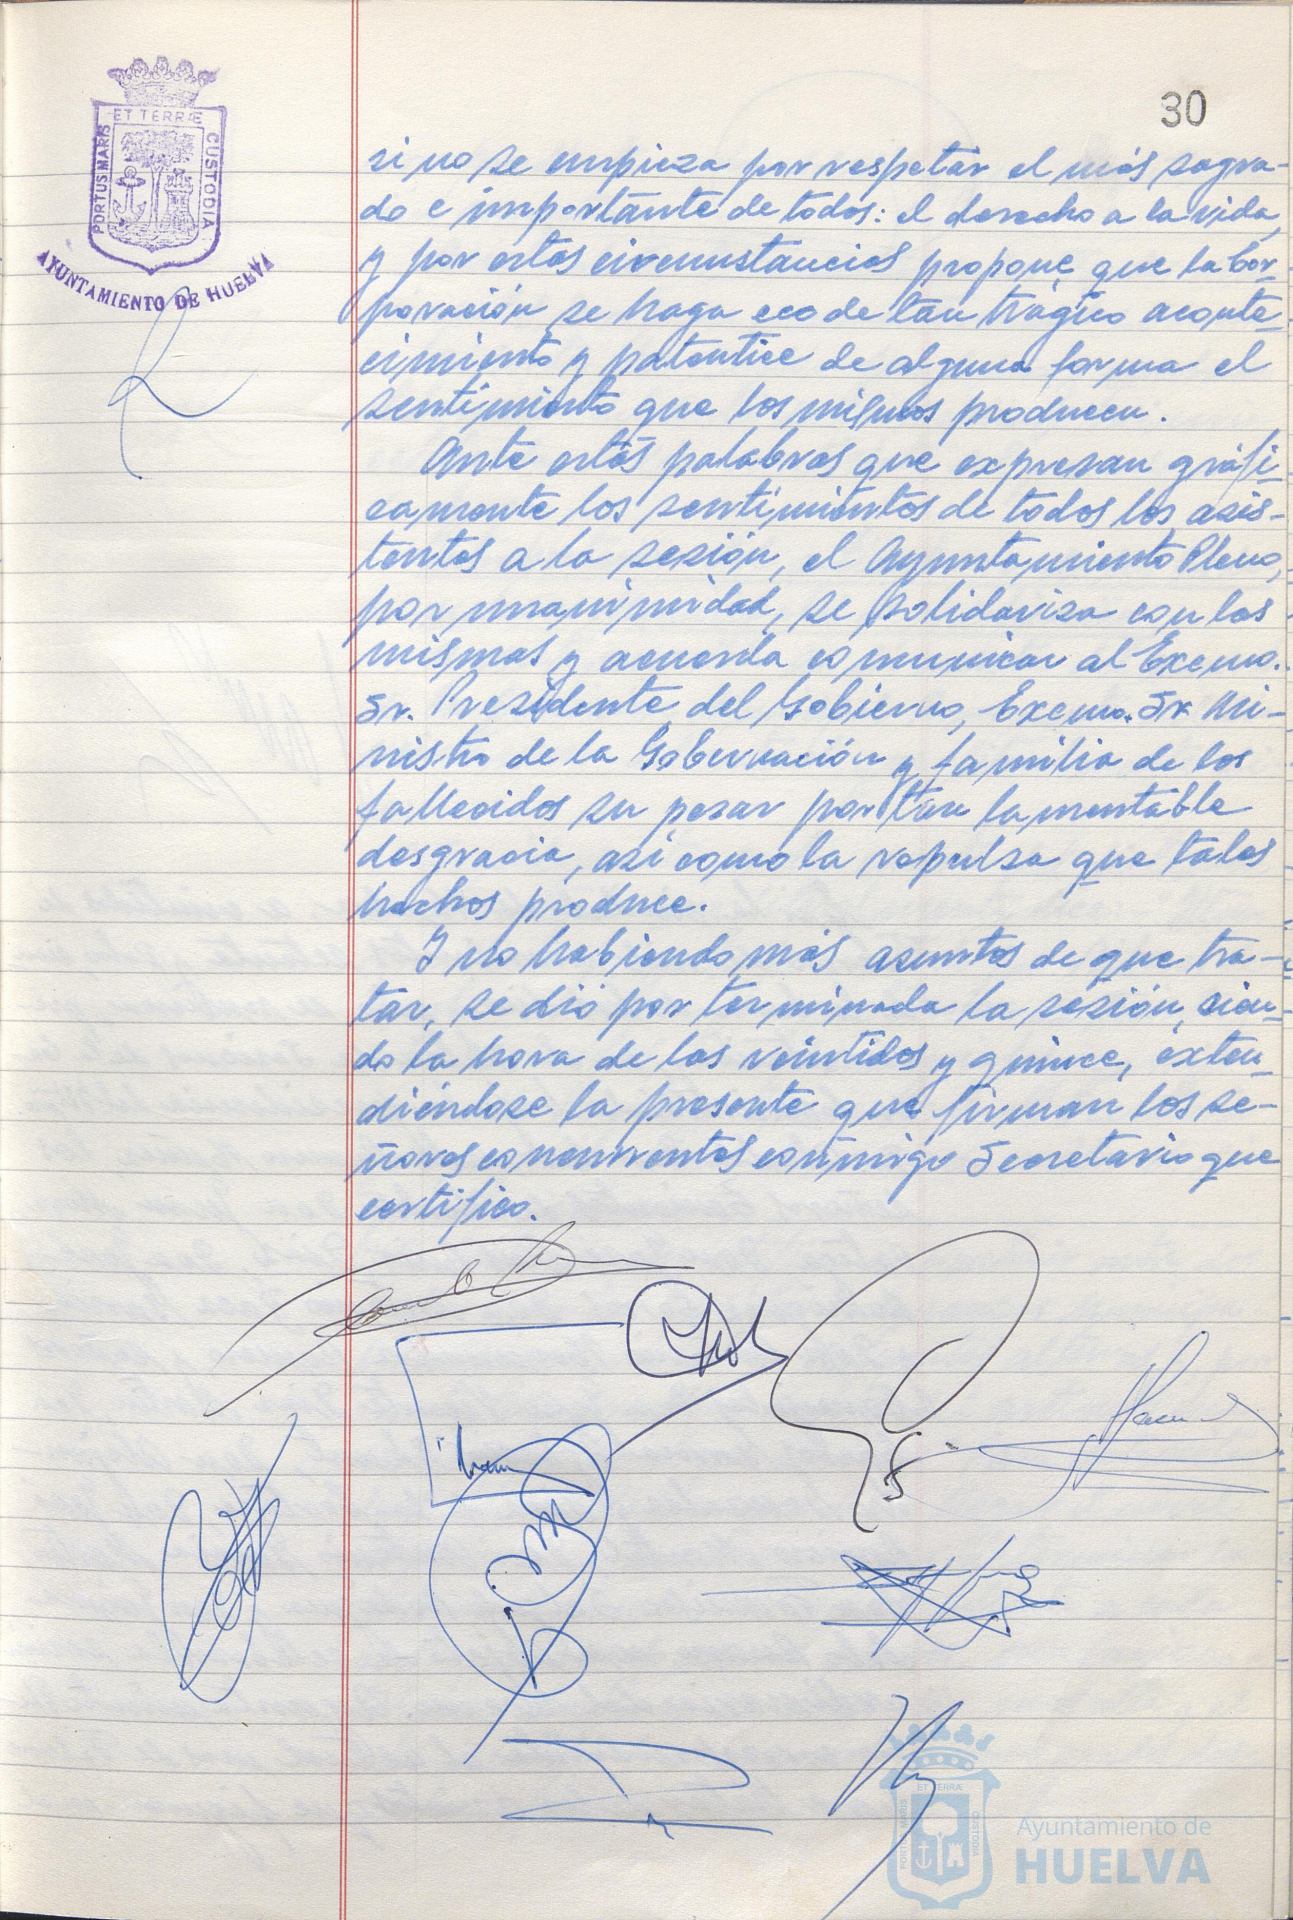 ET TERRÆ
PORTUS MARIS
CUSTODIA
AYUNTAMIENTO DE HUELVA
30
si no se empieza por respetar el más sagra-
do e importante de todos: el derecho a la vida,
y por estas circunstancias propone que la Cor-
poración se haga eco de tan trágico aconte-
cimiento y patentice de alguna forma el
sentimiento que los mismos producen.
Ante estas palabras que expresan gráfi-
camente los sentimientos de todos los asis-
tentes a la sesión, el Ayuntamiento Pleno,
por unanimidad, se solidariza con las
mismas y acuerda comunicar al Excmo.
Sr. Presidente del Gobierno, Excmo. Sr Mi-
nistro de la Gobernación y familia de los
fallecidos su pesar por tan lamentable
desgracia, así como la repulsa que tales
hechos produce.
Y no habiendo más asuntos de que tra-
tar, se dió por terminada la sesión, sien-
do la hora de las veintidos y quince, exten-
diéndose la presente que firman los se-
ñores concurrentes conmigo Secretario que
certifico.
ET TERRÆ
PORTUS MARIS
CUSTODIA
Ayuntamiento de
HUELVA